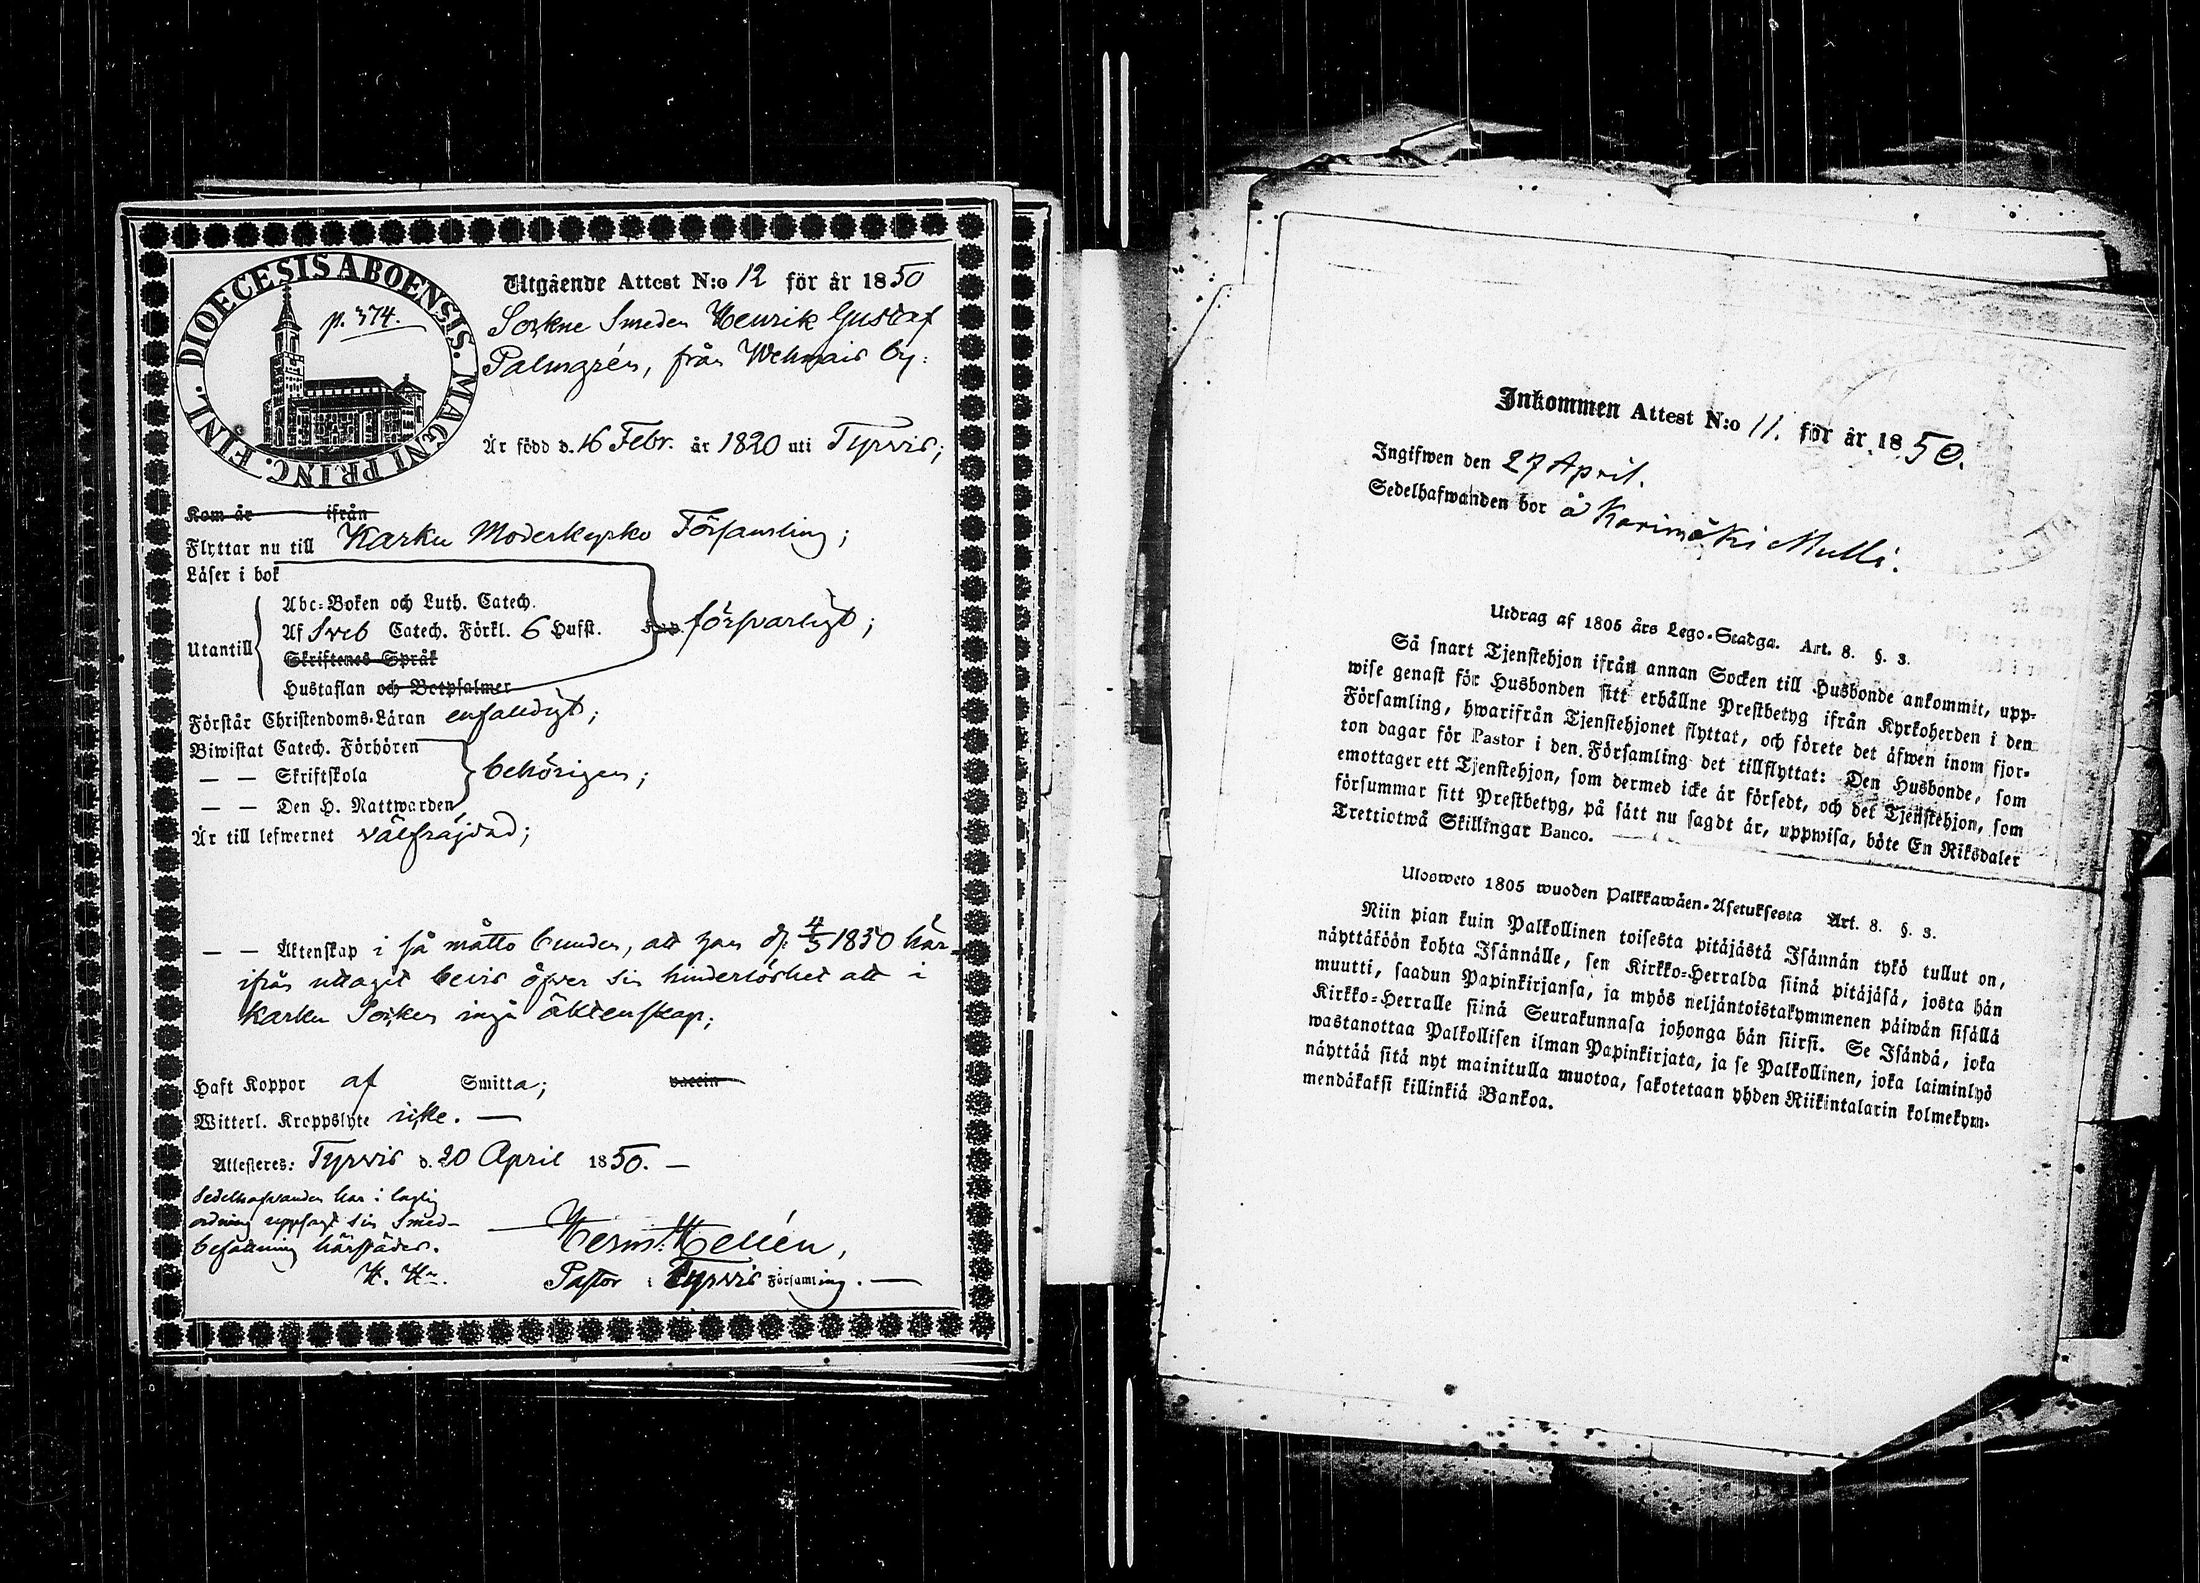 FINL. DIOECESIS ABOENSIS. MAGNI PRINC.
p. 374.
Utgående Attest N:o 12 för år 1850
Sockne Smeden Henrik Gustaf
Palmgrén, från Wehmais by:
Är född d. 16 Febr. år 1820 uti Tyrvis;
Kom år ifrån
Flyttar nu till Karku Moderkyrko Församling;
Läser i bok
Abc-Boken och Luth. Catech.
Utantill Af Sveb Catech. Förkl. 6 Hufst. försvarligt;
Skriftenes Språk
Hustaflan och Botpsalmer
Förstår Christendoms-Läran enfaldigt;
Biwistat Catech. Förhören
— — Skriftskola behörigen;
— — Den H. Nattwarden
Är till lefwernet välfräjdad;
— — Äktenskap i så måtto bunden, att han d. 4/3 1850 här-
ifrån uttagit bevis öfver sin hinderlöshet att i
Karku Socken ingå äktenskap;
Haft Koppor af Smitta; vaccin
Witterl. Kroppslyte icke. —
Attesteres: Tyrvis d. 20 April 1850. —
Sedelhafvanden har i laglig
ordning uppsagt sin Smed-
befattning härstädes.
H. Hn.
Herm. Hellén,
Pastor i Tyrvis Församling. —
Inkommen Attest N:o 11. för år 1850.
Ingifwen den 27 April.
Sedelhafwanden bor å Karimäki Mulli.
Utdrag af 1805 års Lego-Stadga. Art. 8. §. 3.
Så snart Tjenstehjon ifrån annan Socken till Husbonde ankommit, upp-
wise genast för Husbonden sitt erhållne Prestbetyg ifrån Kyrkoherden i den
Församling, hwarifrån Tjenstehjonet flyttat, och förete det äfwen inom fjor-
ton dagar för Pastor i den Församling det tillflyttat: Den Husbonde, som
emottager ett Tjenstehjon, som dermed icke är försedt, och det Tjenstehjon, som
försummar sitt Prestbetyg, på sätt nu sagdt är, uppwisa, böte En Riksdaler
Trettiotwå Skillingar Banco. —
Ulosweto 1805 wuoden Palkkawäen-Asetuksesta Art. 8. §. 3.
Niin pian kuin Palkollinen toisesta pitäjästä Isännän tykö tullut on,
näyttäköön kohta Isännälle, sen Kirkko-Herralda siinä pitäjäsä, josta hän
muutti, saadun Papinkirjansa, ja myös neljäntoistakymmenen päiwän sisällä
Kirkko-Herralle siinä Seurakunnasa johonga hän siirsi. Se Isändä, joka
wastanottaa Palkollisen ilman Papinkirjata, ja se Palkollinen, joka laiminlyö
näyttää sitä nyt mainitulla muotoa, sakotetaan yhden Riikintalarin kolmekym-
mendäkaksi killinkiä Bankoa.